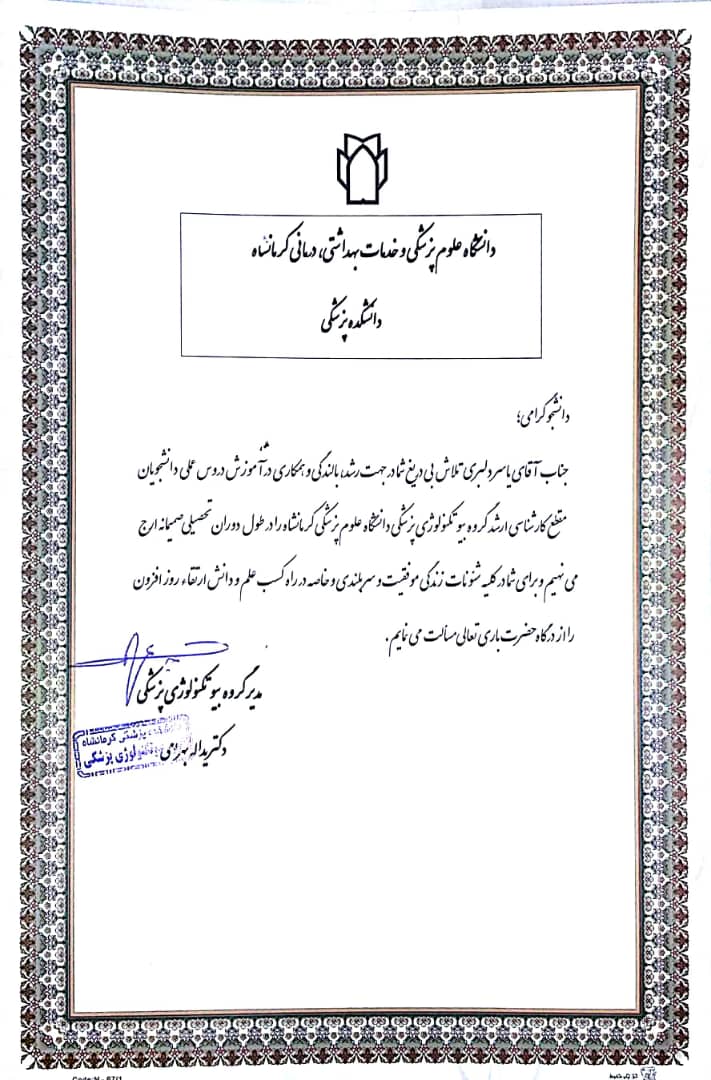 دانشگاه علوم پزشکی و خدمات بهداشتی، درمانی کرمانشاه
دانشکده پزشکی
دانشجو گرامی؛
جناب آقای یاسر دلبری تلاش بی دریغ شما در جهت رشد، بالندگی و همکاری در آموزش دروس عملی دانشجویان
مقطع کارشناسی ارشد گروه بیوتکنولوژی پزشکی دانشگاه علوم پزشکی کرمانشاه را در طول دوران تحصیلی صمیمانه ارج
می نهیم و برای شما در کلیه شئونات زندگی موفقیت و سربلندی و خاصه در راه کسب علم و دانش ارتقاء روز افزون
را از درگاه حضرت باری تعالی مسألت می نمایم.
مدیر گروه بیوتکنولوژی پزشکی
دکتر یداله بهرامی
پزشکی کرمانشاه
بیوتکنولوژی پزشکی